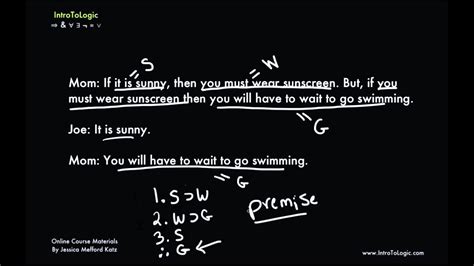 IntroToLogic
⇒ & ∀ ∃ ¬ = ∨
S
W
Mom: If it is sunny, then you must wear sunscreen. But, if you
must wear sunscreen then you will have to wait to go swimming.
G
Joe: It is sunny.
Mom: You will have to wait to go swimming.
G
1. S⊃W
2. W⊃G
3. S
∴ G ←
premise
Online Course Materials
By Jessica Mefford Katz
www.IntroToLogic.com